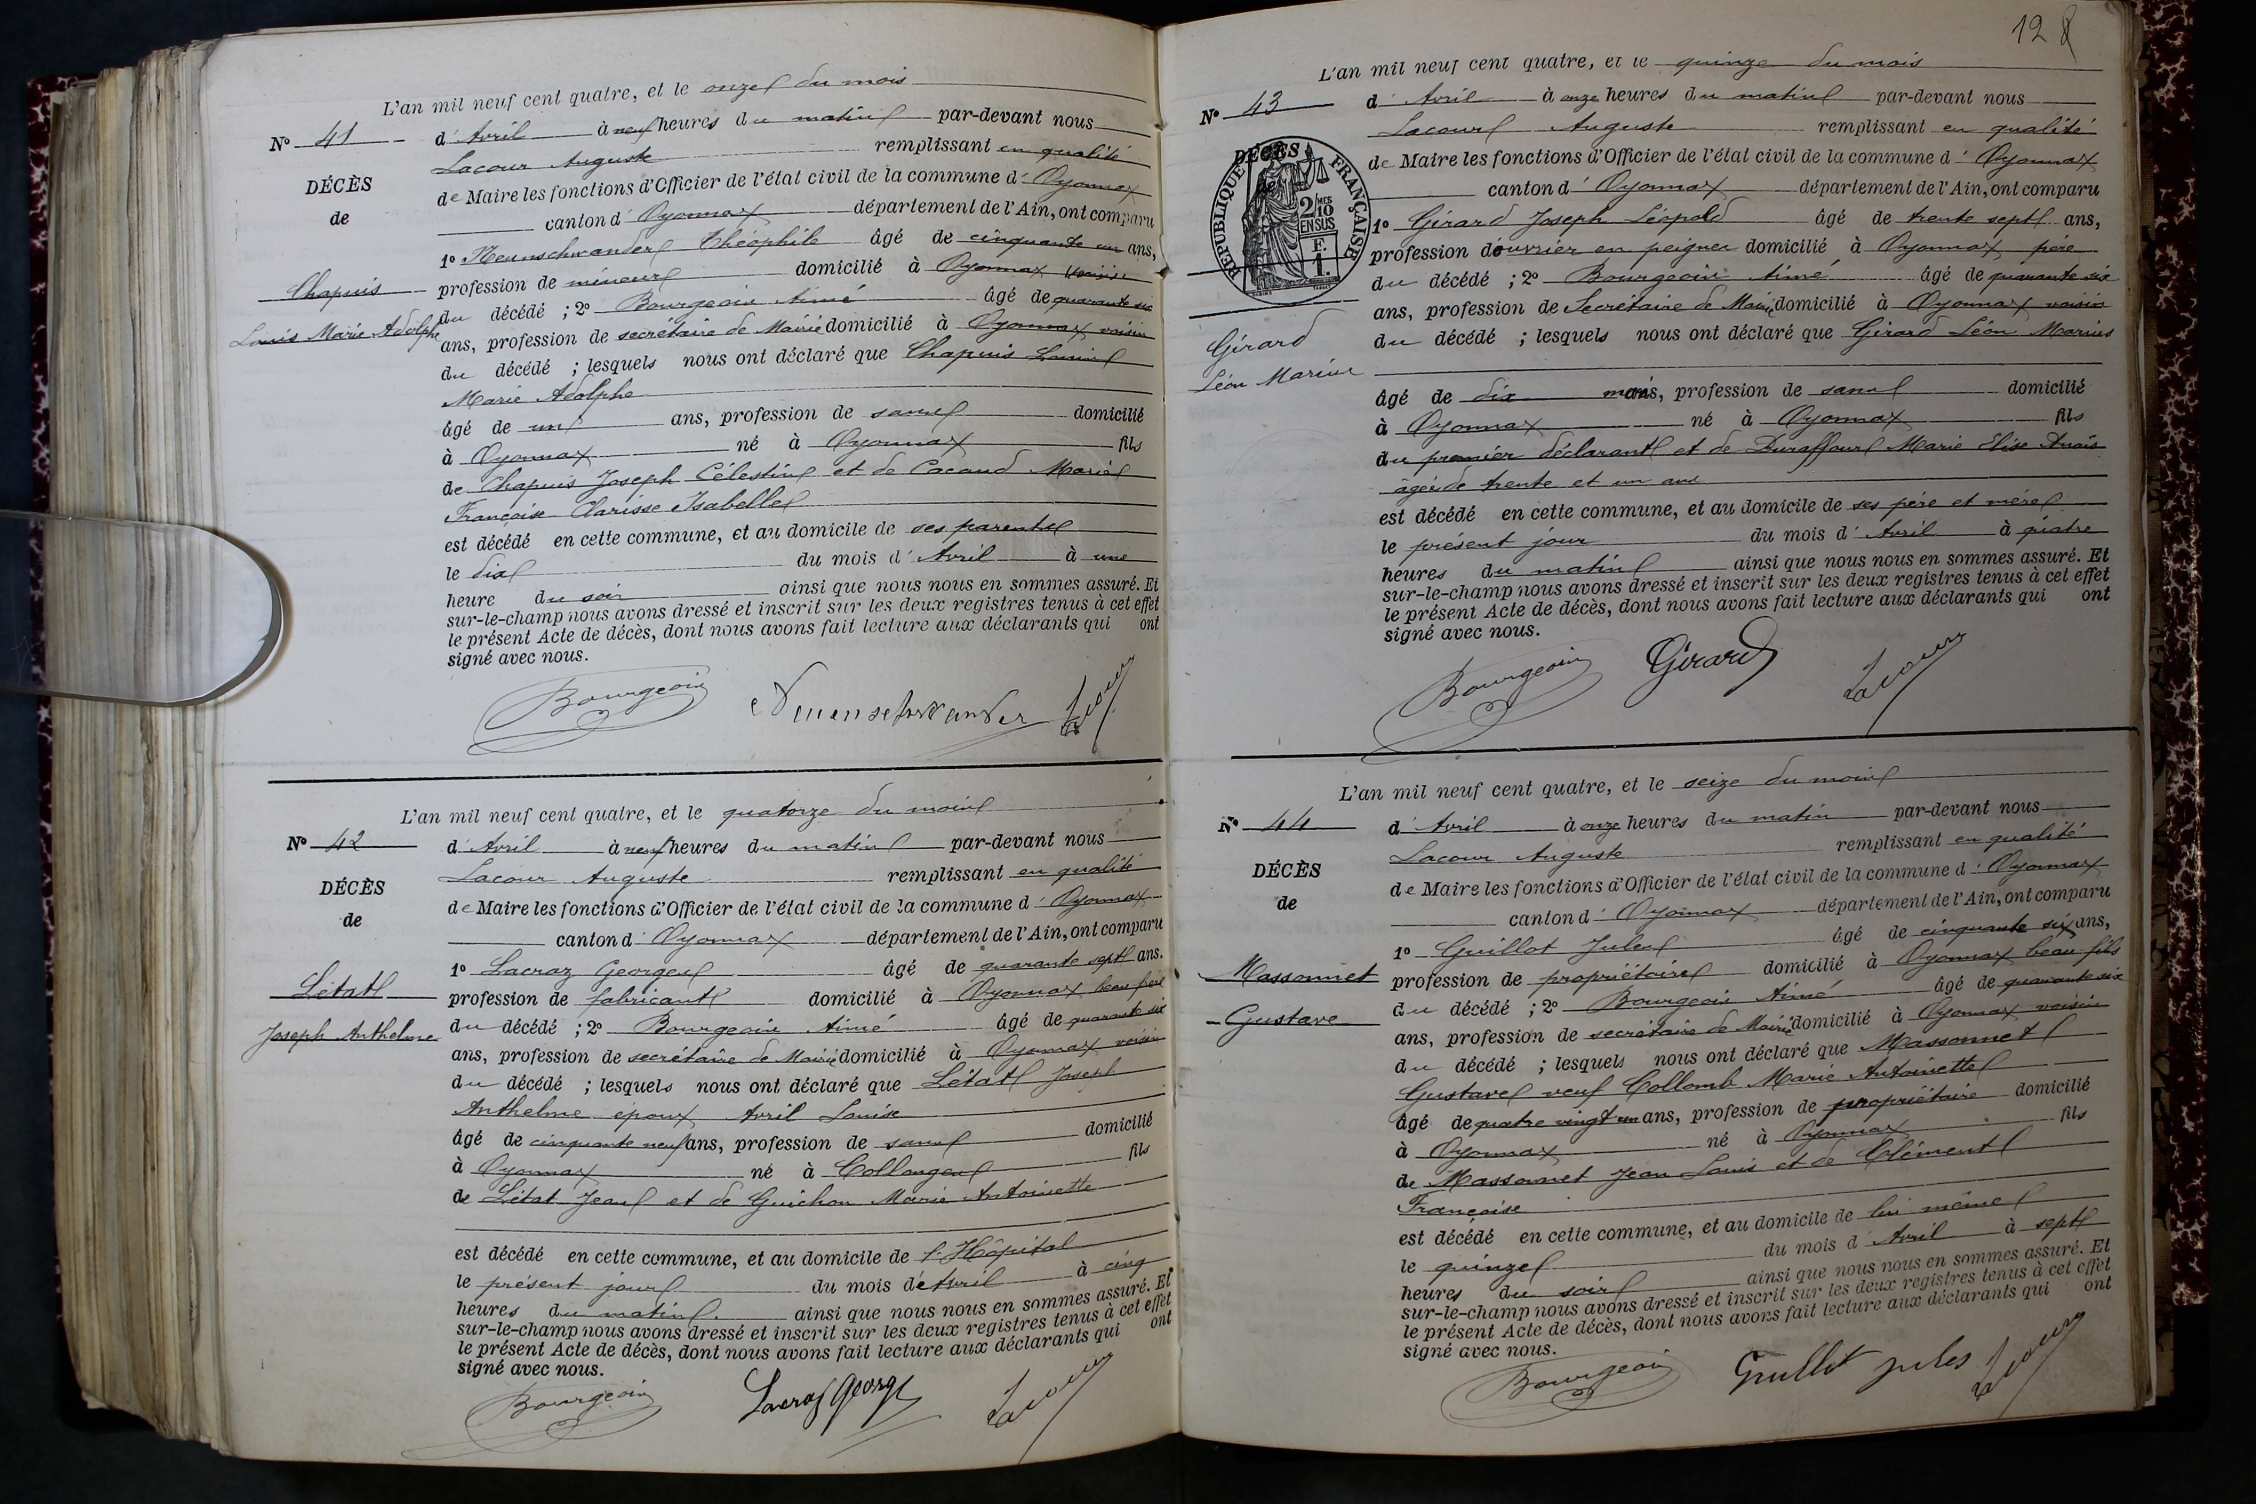 L'an mil neuf cent quatre, et le onze du mois
N° 41
d'Avril à neuf heures du matin par-devant nous
Lacour Auguste remplissant en qualité
DÉCÈS
de Maire les fonctions d'Officier de l'état civil de la commune d'Oyonnax
de
canton d'Oyonnax département de l'Ain, ont comparu
1° Neuenschwander Théophile âgé de cinquante un ans,
Chapuis
profession de mineur domicilié à Oyonnax voisin
Louis Marie Adolphe
du décédé ; 2° Bourgeois Aimé âgé de quarante six
ans, profession de secrétaire de Mairie domicilié à Oyonnax voisin
du décédé ; lesquels nous ont déclaré que Chapuis Louis
Marie Adolphe
âgé de un ans, profession de sans domicilié
à Oyonnax né à Oyonnax fils
de Chapuis Joseph Célestin et de Cacaud Marie
Françoise Clarisse Isabelle
est décédé en cette commune, et au domicile de ses parents
le dix du mois d'Avril à une
heure du soir ainsi que nous nous en sommes assuré. Et
sur-le-champ nous avons dressé et inscrit sur les deux registres tenus à cet effet
le présent Acte de décès, dont nous avons fait lecture aux déclarants qui ont
signé avec nous.
Bourgeois Neuenschwander Lacour
L'an mil neuf cent quatre, et le quatorze du mois
N° 42
d'Avril à neuf heures du matin par-devant nous
Lacour Auguste remplissant en qualité
DÉCÈS
de Maire les fonctions d'Officier de l'état civil de la commune d'Oyonnax
de
canton d'Oyonnax département de l'Ain, ont comparu
1° Lacraz Georges âgé de quarante sept ans.
Létat
profession de fabricant domicilié à Oyonnax beau frère
Joseph Anthelme
du décédé ; 2° Bourgeois Aimé âgé de quarante six
ans, profession de secrétaire de Mairie domicilié à Oyonnax voisin
du décédé ; lesquels nous ont déclaré que Létat Joseph
Anthelme époux Avril Louise
âgé de cinquante neuf ans, profession de sans domicilié
à Oyonnax né à Collonges fils
de Létat Jean et de Guichon Marie Antoinette
est décédé en cette commune, et au domicile de l'Hôpital
le présent jour du mois d'Avril à cinq
heures du matin. ainsi que nous nous en sommes assuré. Et
sur-le-champ nous avons dressé et inscrit sur les deux registres tenus à cet effet
le présent Acte de décès, dont nous avons fait lecture aux déclarants qui ont
signé avec nous.
Bourgeois Lacraz George Lacour
128
L'an mil neuf cent quatre, et le quinze du mois
N° 43
d'Avril à onze heures du matin par-devant nous
Lacour Auguste remplissant en qualité
DÉCÈS
RÉPUBLIQUE FRANÇAISE
2/10 MES EN SUS
F. 1.
de Maire les fonctions d'Officier de l'état civil de la commune d'Oyonnax
canton d'Oyonnax département de l'Ain, ont comparu
1° Girard Joseph Léopold âgé de trente sept ans,
profession d'ouvrier en peignes domicilié à Oyonnax père
du décédé ; 2° Bourgeois Aimé âgé de quarante six
ans, profession de Secrétaire de Mairie domicilié à Oyonnax voisin
Girard
Léon Marius
du décédé ; lesquels nous ont déclaré que Girard Léon Marius
âgé de dix mois, profession de sans domicilié
à Oyonnax né à Oyonnax fils
du premier déclarant et de Duraffour Marie Elise Anaïs
âgée de trente et un ans
est décédé en cette commune, et au domicile de ses père et mère
le présent jour du mois d'Avril à quatre
heures du matin ainsi que nous nous en sommes assuré. Et
sur-le-champ nous avons dressé et inscrit sur les deux registres tenus à cet effet
le présent Acte de décès, dont nous avons fait lecture aux déclarants qui ont
signé avec nous.
Bourgeois Girard Lacour
L'an mil neuf cent quatre, et le seize du mois
N° 44
d'Avril à onze heures du matin par-devant nous
Lacour Auguste remplissant en qualité
DÉCÈS
de Maire les fonctions d'Officier de l'état civil de la commune d'Oyonnax
de
canton d'Oyonnax département de l'Ain, ont comparu
1° Guillot Jules âgé de cinquante six ans,
Massonnet
profession de propriétaire domicilié à Oyonnax beau-fils
Gustave
du décédé ; 2° Bourgeois Aimé âgé de quarante six
ans, profession de secrétaire de Mairie domicilié à Oyonnax voisin
du décédé ; lesquels nous ont déclaré que Massonnet
Gustave veuf Collomb Marie Antoinette
âgé de quatre vingt un ans, profession de propriétaire domicilié
à Oyonnax né à Oyonnax fils
de Massonnet Jean Louis et de Clément
Françoise
est décédé en cette commune, et au domicile de lui même
le quinze du mois d'Avril à sept
heures du soir ainsi que nous nous en sommes assuré. Et
sur-le-champ nous avons dressé et inscrit sur les deux registres tenus à cet effet
le présent Acte de décès, dont nous avons fait lecture aux déclarants qui ont
signé avec nous.
Bourgeois Guillot jules Lacour